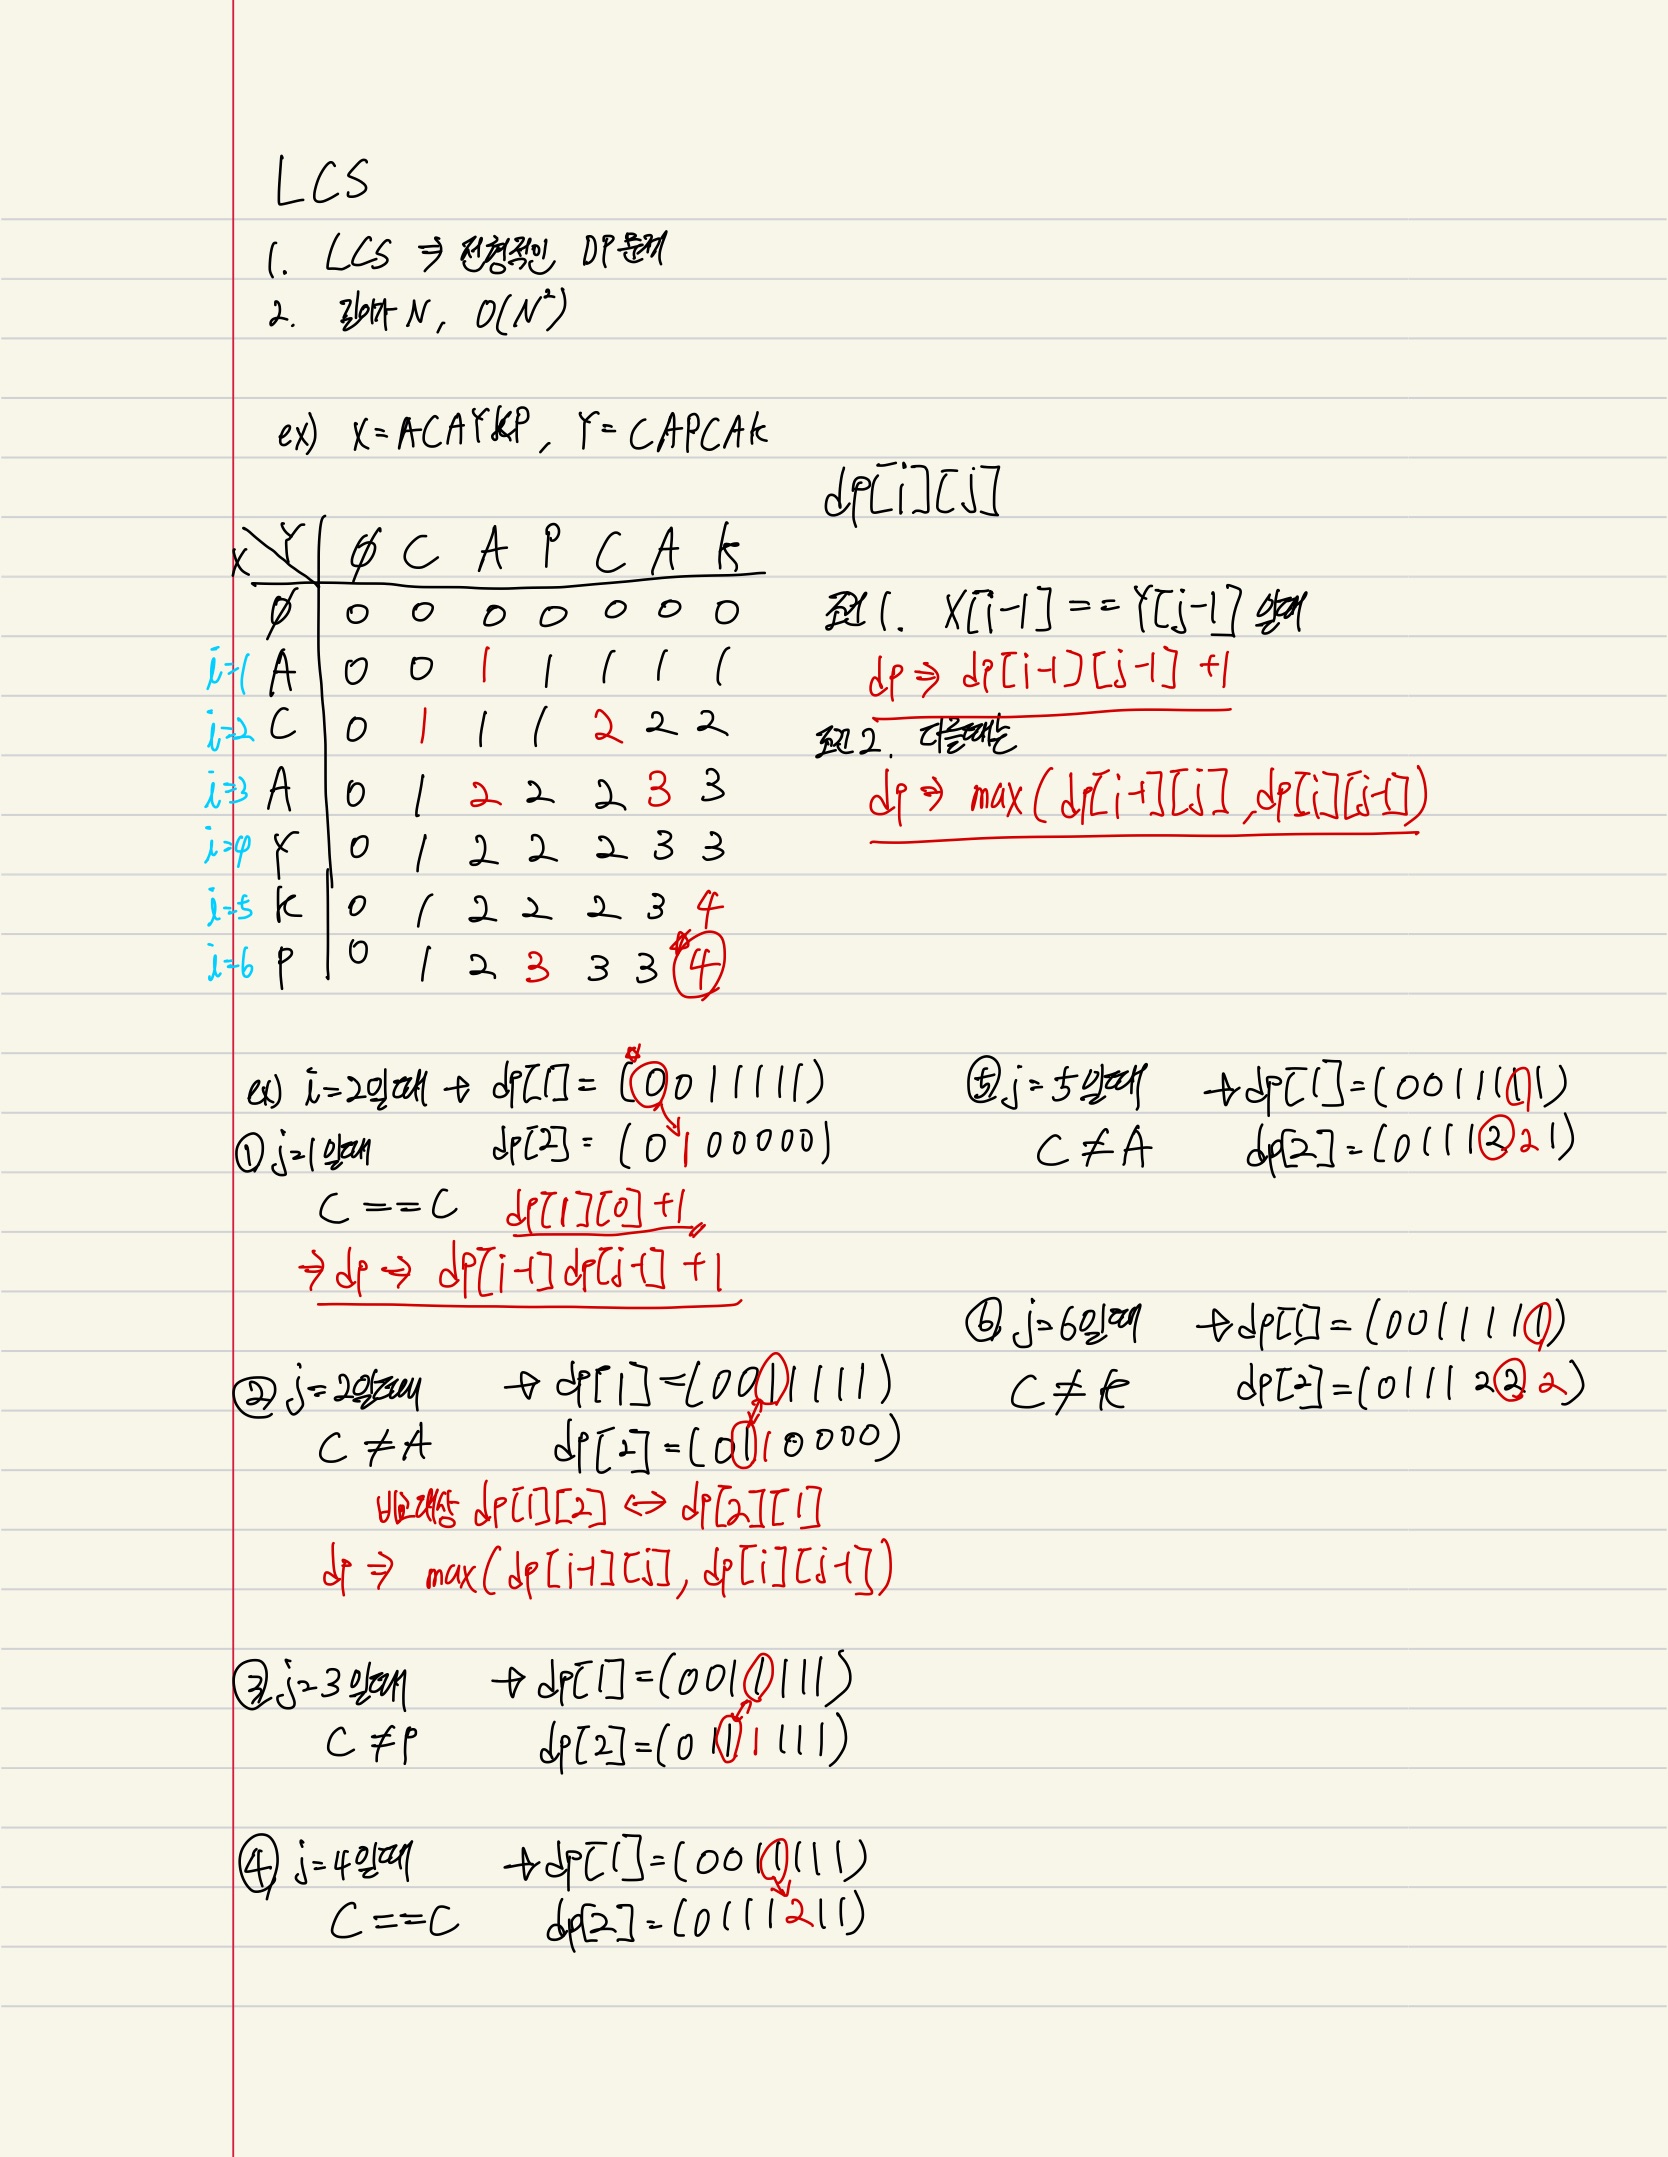 LCS
1. LCS ⇒ 전형적인 DP문제
2. 길이가 N, O(N²)
ex) X=ACAYKP, Y=CAPCAK
dp[i][j]
X Y ∅ C A P C A K
∅ 0 0 0 0 0 0 0
i=1 A 0 0 1 1 1 1 1
i=2 C 0 1 1 1 2 2 2
i=3 A 0 1 2 2 2 3 3
i=4 Y 0 1 2 2 2 3 3
i=5 K 0 1 2 2 2 3 4
i=6 P 0 1 2 3 3 3 4
조건 1. X[i-1] == Y[j-1] 일때
dp ⇒ dp[i-1][j-1] +1
조건 2. 다를때는
dp ⇒ max(dp[i-1][j], dp[i][j-1])
ex) i=2일때 → dp[1] = (0 0 1 1 1 1 1)
① j=1일때 dp[2] = (0 1 0 0 0 0 0)
C == C dp[1][0] +1
⇒ dp → dp[i-1] dp[j-1] +1
② j=2일때 → dp[1] = (0 0 1 1 1 1 1)
C ≠ A dp[2] = (0 1 1 0 0 0 0)
비교대상 dp[1][2] ↔ dp[2][1]
dp ⇒ max(dp[i-1][j], dp[i][j-1])
③ j=3일때 → dp[1] = (0 0 1 1 1 1 1)
C ≠ P dp[2] = (0 1 1 1 1 1 1)
④ j=4일때 → dp[1] = (0 0 1 1 1 1 1)
C == C dp[2] = (0 1 1 1 2 1 1)
⑤ j=5일때 → dp[1] = (0 0 1 1 1 1 1)
C ≠ A dp[2] = (0 1 1 1 2 2 1)
⑥ j=6일때 → dp[1] = (0 0 1 1 1 1 1)
C ≠ K dp[2] = (0 1 1 1 2 2 2)